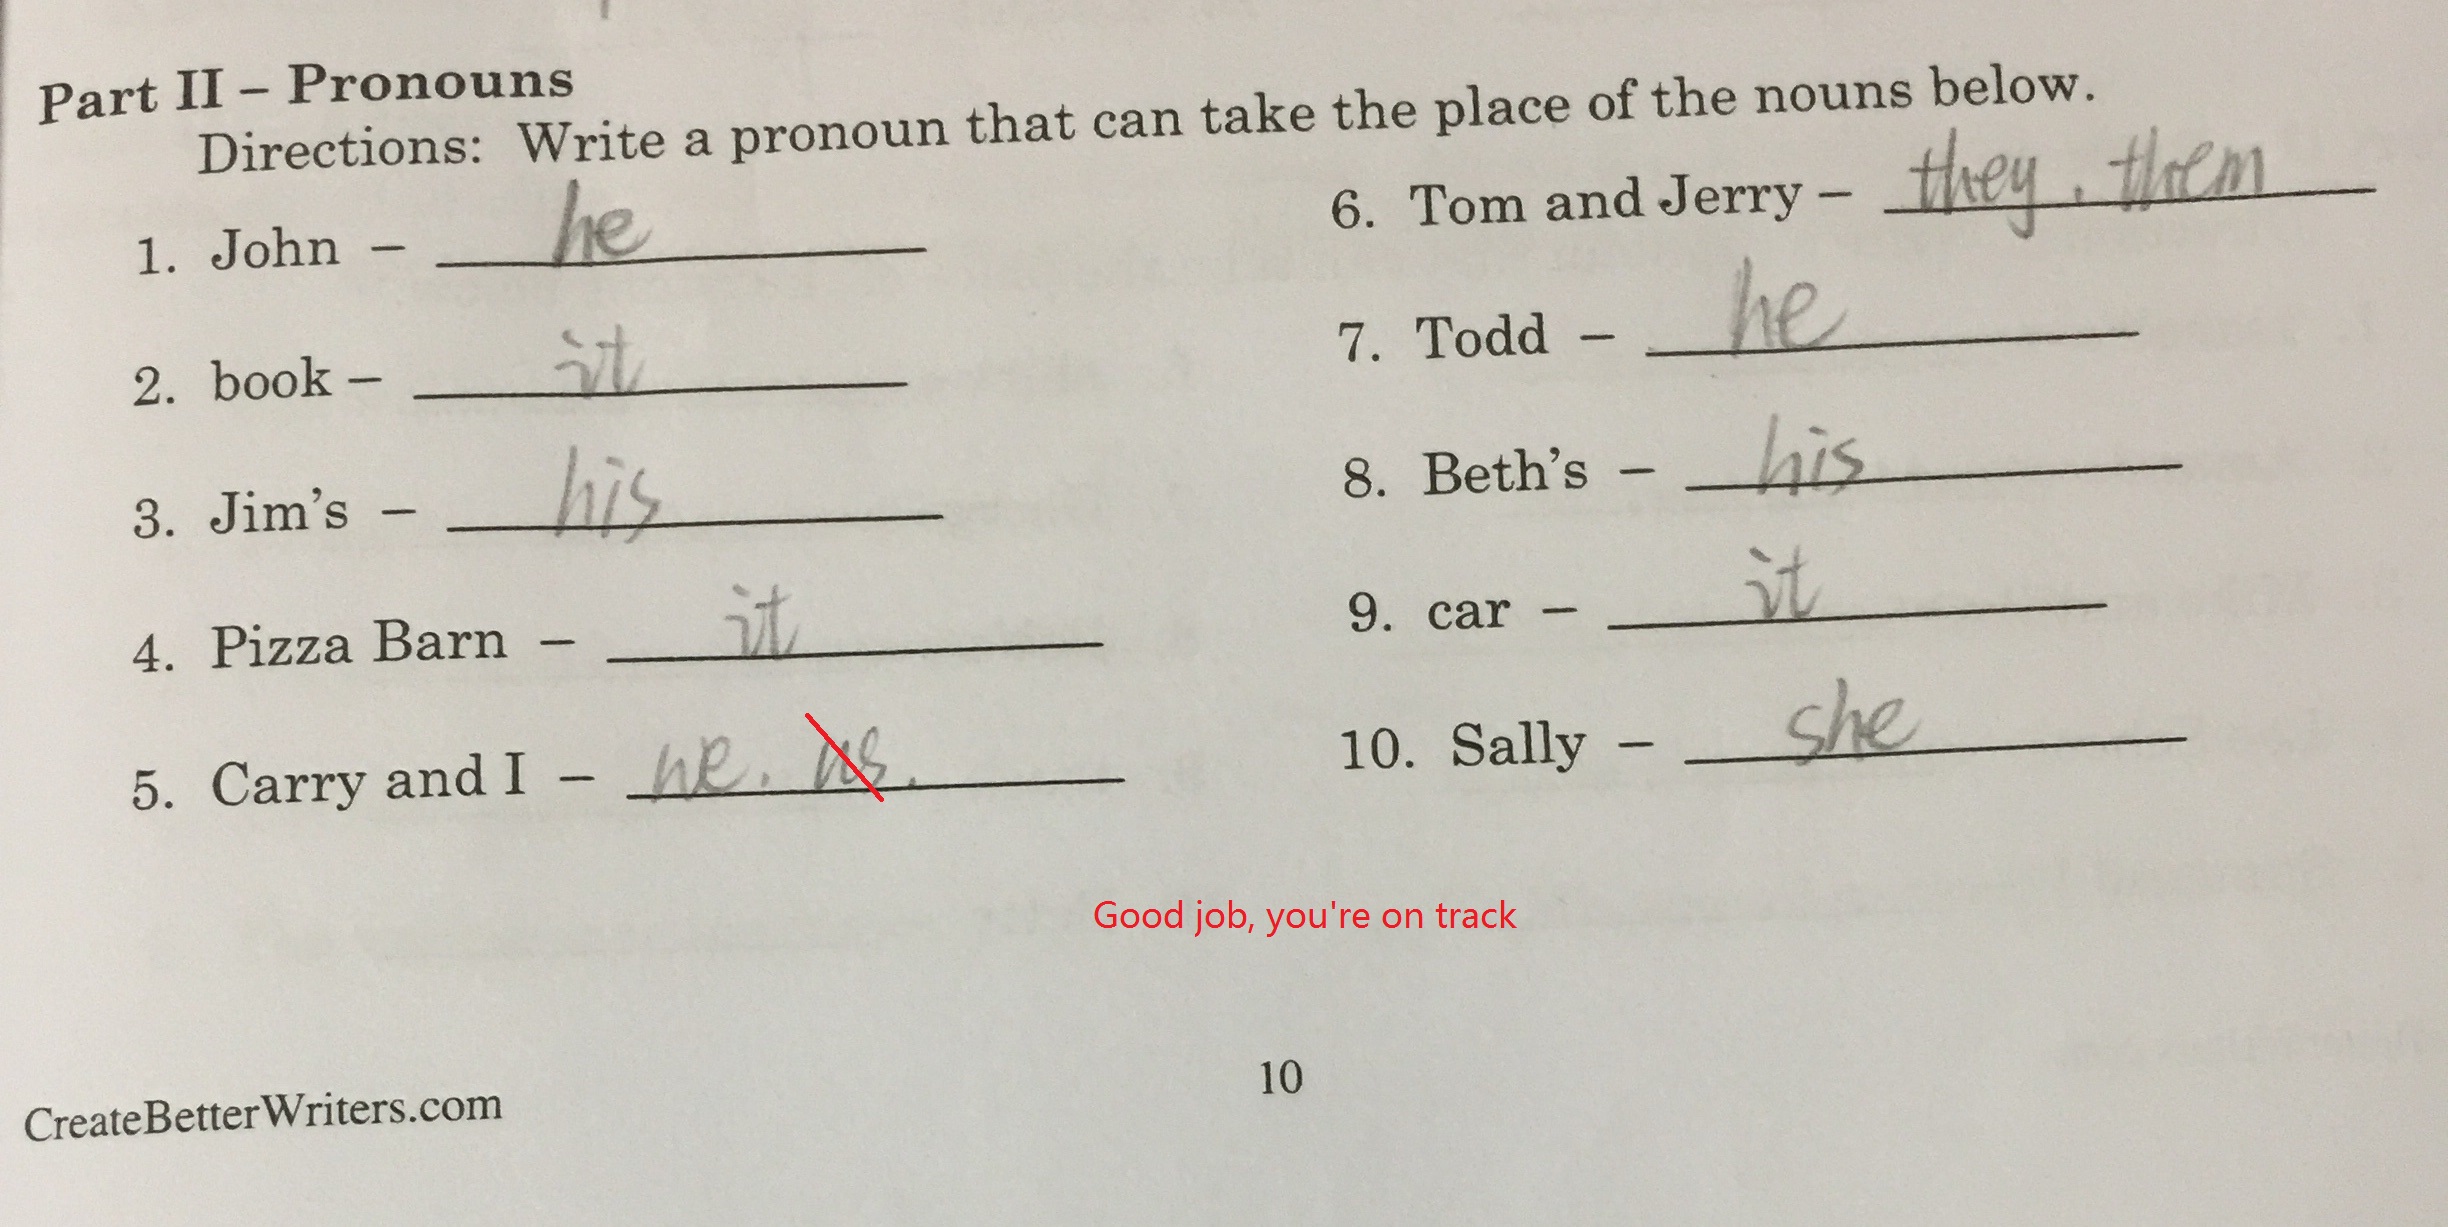 Part II – Pronouns
Directions: Write a pronoun that can take the place of the nouns below.
1. John – he
2. book – it
3. Jim's – his
4. Pizza Barn – it
5. Carry and I – we. us.
6. Tom and Jerry – they, them
7. Todd – he
8. Beth's – his
9. car – it
10. Sally – she
Good job, you're on track
10
CreateBetterWriters.com